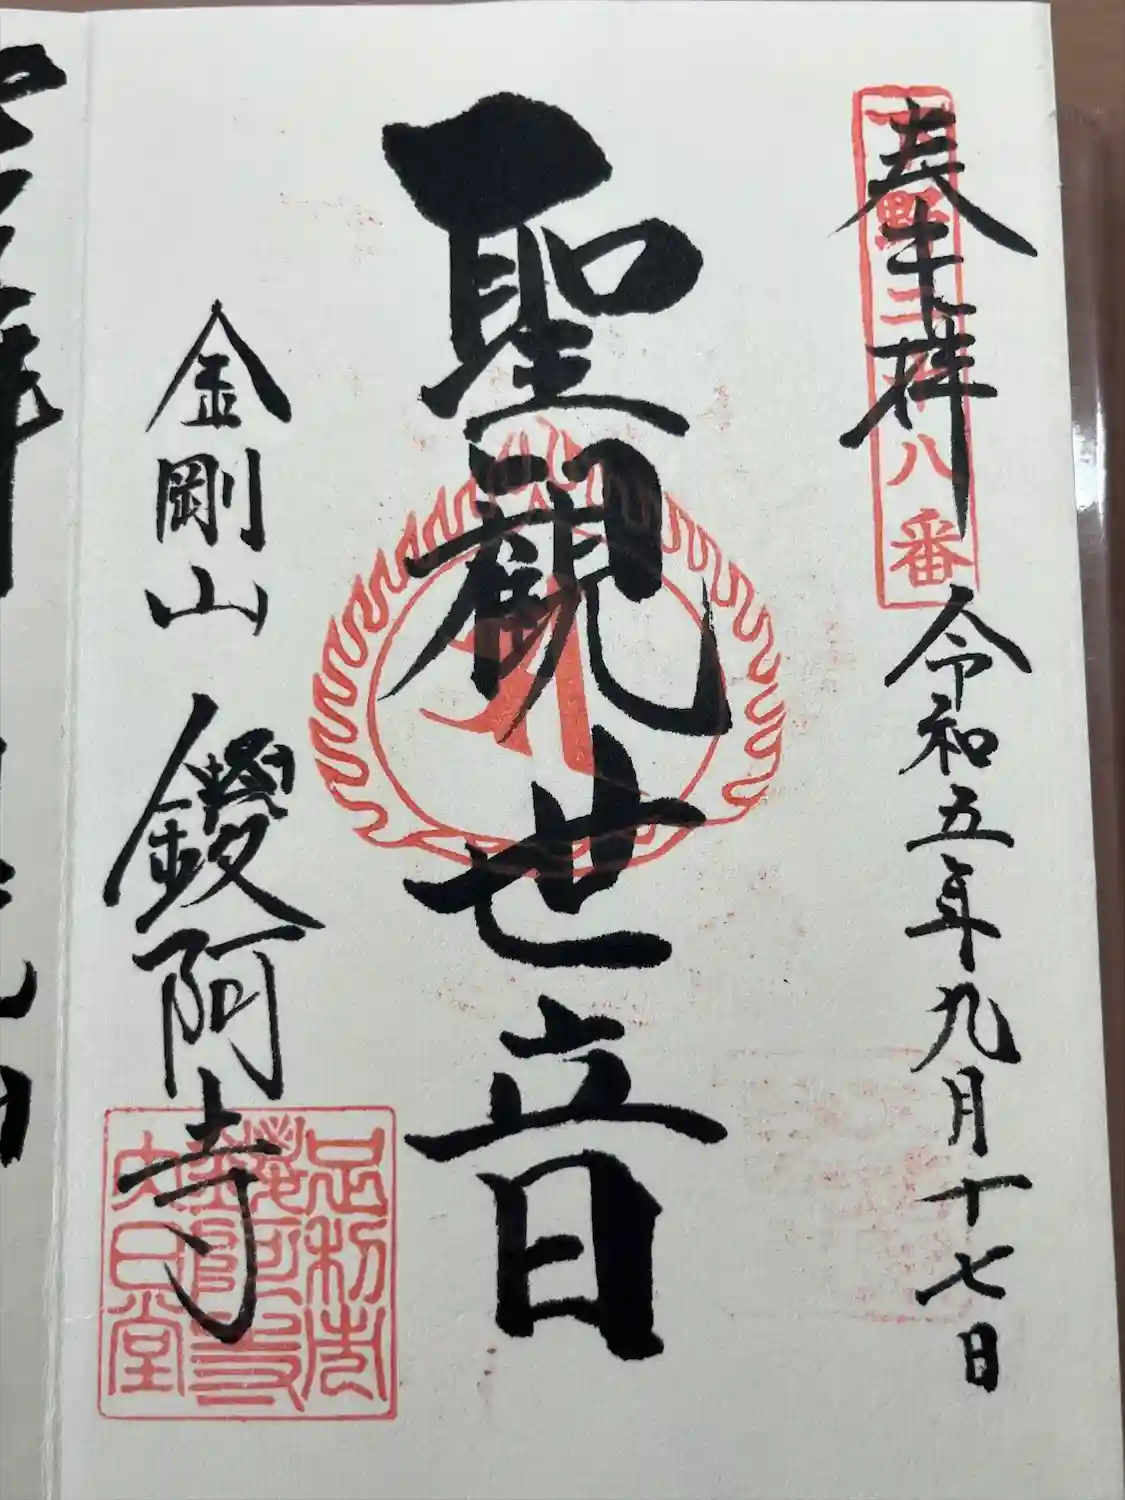 奉拝
令和五年九月十七日
聖観世音
金剛山 鑁阿寺
足利市
鑁阿寺
大日堂